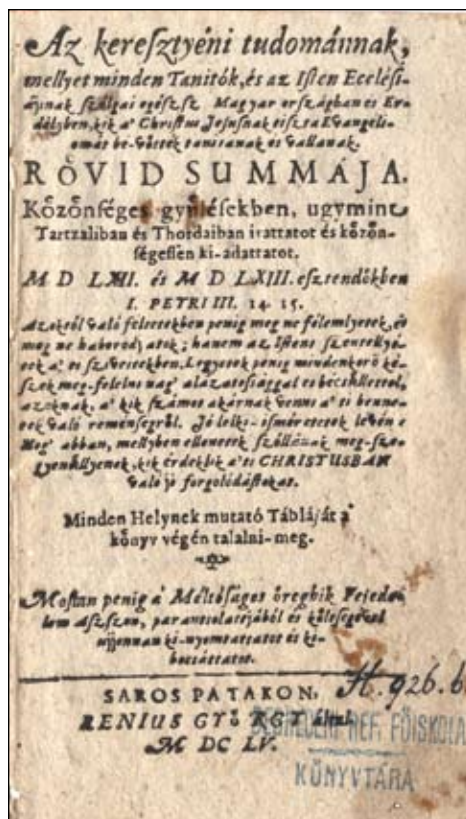 Az keresztyéni tudománnak,
mellyet minden Tanitók, és az Isten Ecclési-
ájinak szólgai egész sz Magyar országban es Er-
délyben, kik a' Christus Jesusnak tiszta Evangeli-
omát be-vőtték tanitanak és vallanak.
RŐVID SUMMÁJA.
Kőzőnséges gyűlésekben, ugymint
Tartzaliban és Thordaiban irattatot és kőzőn-
ségessen ki-adattatot.
M D LXII. és M D LXIII. esztendőkben
I. PETRI III. 14. 15.
Azoktól való féletekben penig meg ne félemlyetek, és
meg ne haborodjatok; hanem az Istent szentellyé-
tek a' ti szívetekben. Legyetek penig mindenkoron ké-
szek meg-felelni nagy alázatossággal es bőcsűllettel,
azoknak, a' kik számot akárnak venni a' ti benne-
tek való reménségről. Jó lelki-isméretetek lévén
Hogy abban, mellyben ellenetek szóllanak meg-szé-
gyenűllyenek, kik érdeklik a' ti CHRISTUSBAN
való jó forgolódástokat.
Minden Helynek mutató Tábláját a'
kőnyv végén talalni-meg.
Mostan penig a' Méltóságos őregbik Fejede-
lem Aszszony, parantsolatjából és kőltségével
ujjonnan ki-nyomtattatot és ki-
botsáttatot.
SAROS PATAKON, H. 926. b
RENIUS GYŐRGY által
M DC LV.
DEBRECENI REF. FŐISKOLA
KÖNYVTÁRA